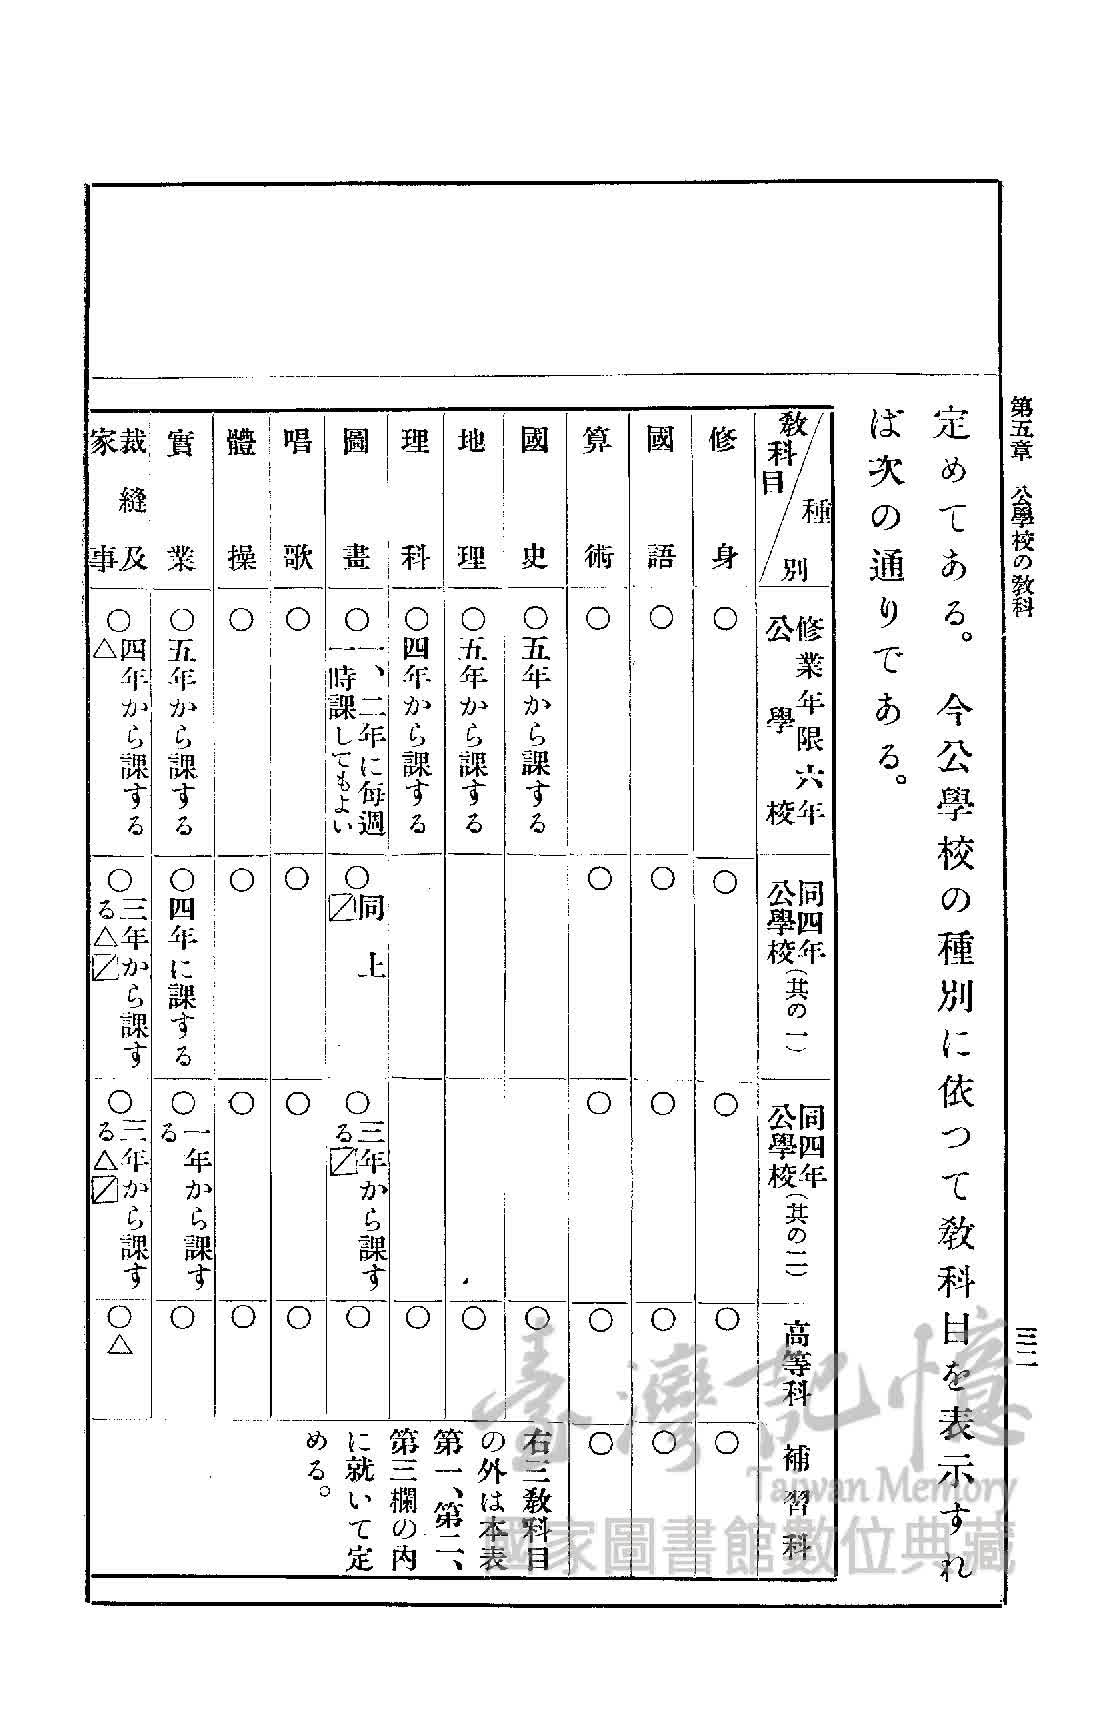 第五章　公學校の敎科
三二
定めてある。今公學校の種別に依つて敎科目を表示すれ
ば次の通りである。
種別
敎科目
修業年限六年
公學校
同四年
公學校(其の一)
同四年
公學校(其の二)
高等科
補習科
修身
○
○
○
○
○
國語
○
○
○
○
○
算術
○
○
○
○
○
國史
○五年から課する
○
地理
○五年から課する
○
理科
○四年から課する
○
圖畫
○一、二年に每週
一時課してもよい
○同上
〼
○三年から課す
る〼
○
唱歌
○
○
○
○
體操
○
○
○
○
實業
○五年から課する
○四年に課する
○一年から課す
る
○
裁縫及
家事
○四年から課する
△
○三年から課す
る△〼
○三年から課す
る△〼
○
△
右三敎科目
の外は本表
第一、第二、
第三欄の內
に就いて定
める。
臺灣記憶
Taiwan Memory
國家圖書館數位典藏